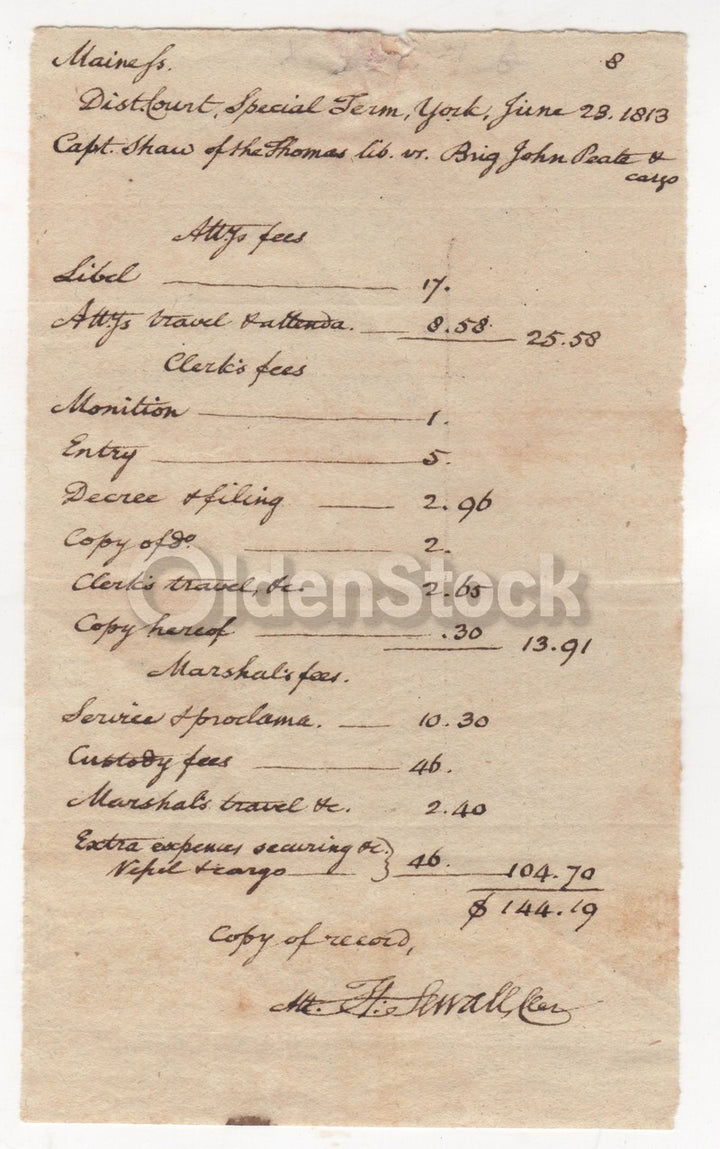 Maine ss. 8
Dist. Court, Special Term, York, June 23. 1813
Capt. Shaw of the Thomas lib. vs. Brig John Peate &
cargo
Att.ys fees
Libel — 17.
Att.ys travel & attenda. — 8.58 25.58
Clerk's fees
Monition — 1.
Entry — 5.
Decree & filing — 2.96
Copy of do. — 2.
OldenStock
Clerk's travel, &c. 2.65
Copy hereof — .30 13.91
Marshal's fees.
Service & proclama. — 10.30
Custody fees — 46.
Marshal's travel &c. 2.40
Extra expenses securing &c.
Vessel & cargo — } 46. — 104.70
$144.19
Copy of record,
Att. H. Sewall, Cler